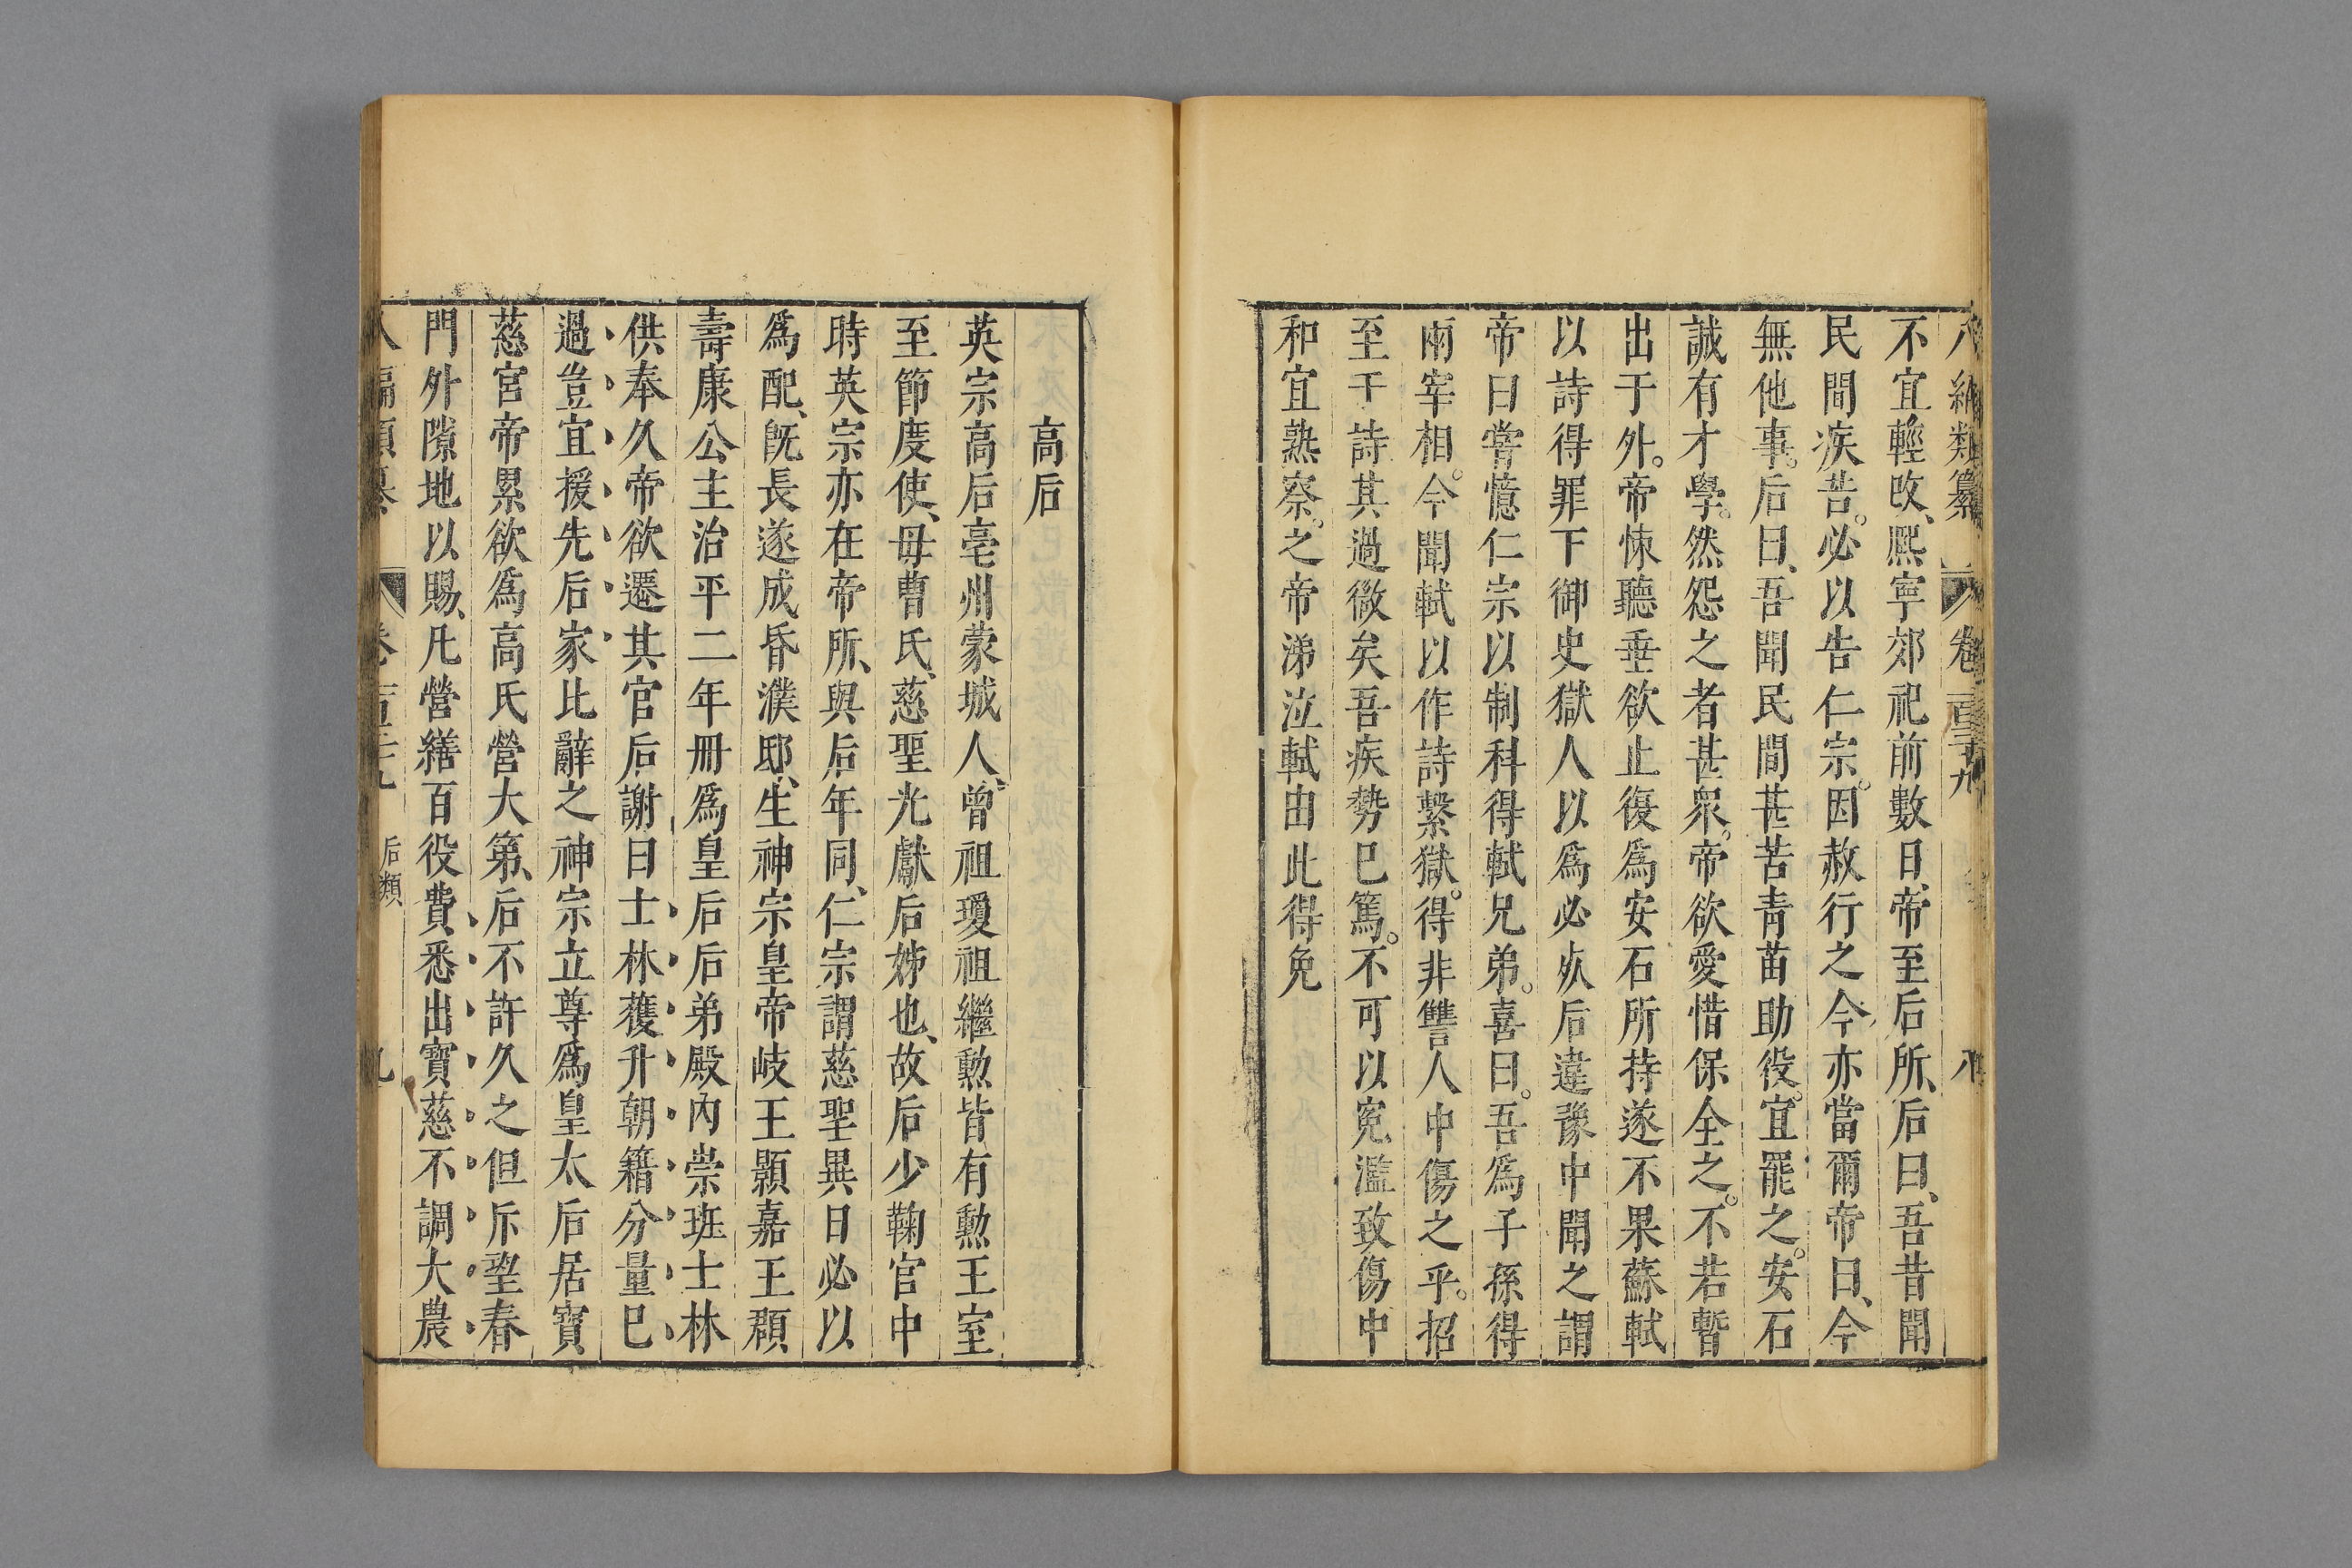 八編類纂 卷一百三十九 八
不宜輕改、熙寧郊祀前數日、帝至后所、后曰、吾昔聞
民間疾苦。必以告仁宗。因赦行之今亦當爾帝曰、今
無他事。后曰、吾聞民間甚苦青苗助役。宜罷之。安石
誠有才學。然怨之者甚衆。帝欲愛惜保全之。不若暫
出于外。帝悚聽垂欲止復爲安石所持遂不果蘇軾
以詩得罪下御史獄人以爲必死后違豫中聞之謂
帝曰嘗憶仁宗以制科得軾兄弟。喜曰。吾爲子孫得
兩宰相。今聞軾以作詩繫獄。得非讐人中傷之乎。招
至于詩其過微矣吾疾勢巳篤。不可以寃濫致傷中
和宜熟察。之帝涕泣軾由此得免
高后
英宗高后亳州蒙城人、曾祖瓊祖繼勲皆有勲王室
至節度使、母曹氏、慈聖光獻后姊也、故后少鞠宮中
時英宗亦在帝所、與后年同、仁宗謂慈聖異日必以
爲配、旣長遂成昏濮邸、生神宗皇帝岐王顥嘉王頵
壽康公主治平二年冊爲皇后后弟殿內崇班士林
供奉久帝欲遷其官后謝曰士林獲升朝籍分量巳
過豈宜援先后家比辭之神宗立尊爲皇太后居寶
慈宮帝累欲爲高氏營大第、后不許久之但斥望春
門外隙地以賜、凡營繕百役費悉出寶慈不調大農
后類 九